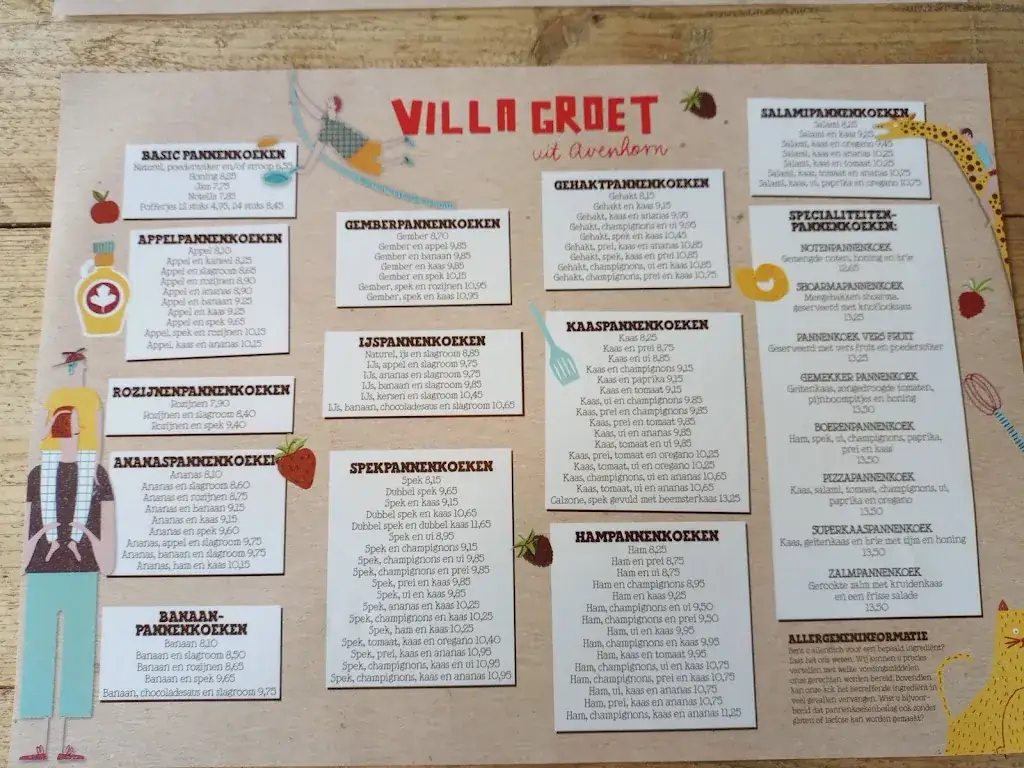 VILLA GROET
uit Avenhorn
BASIC PANNENKOEKEN
Naturel, poedersuiker en/of stroop 6,55
Honing 8,25
Jam 7,75
Notella 7,85
Poffertjes 12 stuks 4,95, 24 stuks 8,45
APPELPANNENKOEKEN
Appel 8,10
Appel en kaneel 8,25
Appel en slagroom 8,65
Appel en rozijnen 8,90
Appel en ananas 8,90
Appel en banaan 9,25
Appel en kaas 9,25
Appel en spek 9,65
Appel, spek en rozijnen 10,15
Appel, kaas en ananas 10,15
ROZIJNENPANNENKOEKEN
Rozijnen 7,90
Rozijnen en slagroom 8,40
Rozijnen en spek 9,40
ANANASPANNENKOEKEN
Ananas 8,10
Ananas en slagroom 8,60
Ananas en rozijnen 8,75
Ananas en banaan 9,15
Ananas en kaas 9,15
Ananas en spek 9,60
Ananas, appel en slagroom 9,75
Ananas, banaan en slagroom 9,75
Ananas, ham en kaas 10,15
BANAAN-
PANNENKOEKEN
Banaan 8,10
Banaan en slagroom 8,50
Banaan en rozijnen 8,65
Banaan en spek 9,65
Banaan, chocoladesaus en slagroom 9,75
GEMBERPANNENKOEKEN
Gember 8,70
Gember en appel 9,85
Gember en banaan 9,85
Gember en kaas 9,85
Gember en spek 10,15
Gember, spek en rozijnen 10,95
Gember, spek en kaas 10,95
IJSPANNENKOEKEN
Naturel, ijs en slagroom 8,85
IJs, appel en slagroom 9,75
IJs, ananas en slagroom 9,75
IJs, banaan en slagroom 9,85
IJs, kersen en slagroom 10,45
IJs, banaan, chocoladesaus en slagroom 10,65
SPEKPANNENKOEKEN
Spek 8,15
Dubbel spek 9,65
Spek en kaas 9,15
Dubbel spek en kaas 10,65
Dubbel spek en dubbel kaas 11,65
Spek en ui 8,95
Spek en champignons 9,15
Spek, champignons en ui 9,85
Spek, champignons en prei 9,85
Spek, prei en kaas 9,85
Spek, ui en kaas 9,85
Spek, ananas en kaas 10,25
Spek, champignons en kaas 10,25
Spek, ham en kaas 10,25
Spek, tomaat, kaas en oregano 10,40
Spek, prei, kaas en ananas 10,95
Spek, champignons, kaas en ui 10,95
Spek, champignons, kaas en ananas 10,95
GEHAKTPANNENKOEKEN
Gehakt 8,15
Gehakt en kaas 9,15
Gehakt, kaas en ananas 9,95
Gehakt, champignons en ui 9,95
Gehakt, spek en kaas 10,45
Gehakt, prei, kaas en ananas 10,85
Gehakt, spek, kaas en prei 10,85
Gehakt, champignons, ui en kaas 10,85
Gehakt, champignons, prei en kaas 10,75
KAASPANNENKOEKEN
Kaas 8,25
Kaas en prei 8,75
Kaas en ui 8,85
Kaas en champignons 9,15
Kaas en paprika 9,15
Kaas en tomaat 9,15
Kaas, ui en champignons 9,85
Kaas, prei en champignons 9,85
Kaas, prei en tomaat 9,85
Kaas, ui en ananas 9,85
Kaas, tomaat en ui 9,85
Kaas, prei, tomaat en oregano 10,25
Kaas, tomaat, ui en oregano 10,25
Kaas, champignons, ui en ananas 10,65
Kaas, tomaat, ui en ananas 10,65
Calzone, spek gevuld met beemsterkaas 13,25
HAMPANNENKOEKEN
Ham 8,25
Ham en prei 8,75
Ham en ui 8,75
Ham en champignons 8,95
Ham en kaas 9,25
Ham, champignons en ui 9,50
Ham, champignons en prei 9,50
Ham, ui en kaas 9,95
Ham, champignons en kaas 9,95
Ham, kaas en tomaat 9,95
Ham, champignons, ui en kaas 10,75
Ham, champignons, prei en kaas 10,75
Ham, ui, kaas en ananas 10,75
Ham, prei, kaas en ananas 10,75
Ham, champignons, kaas en ananas 11,25
SALAMIPANNENKOEKEN
Salami 8,25
Salami en kaas 9,25
Salami, kaas en oregano 9,45
Salami, kaas en ananas 10,25
Salami, kaas en tomaat 10,25
Salami, kaas, tomaat en ananas 10,75
Salami, kaas, ui, paprika en oregano 10,75
SPECIALITEITEN-
PANNENKOEKEN:
NOTENPANNENKOEK
Gemengde noten, honing en brie
12,65
SHOARMAPANNENKOEK
Mengehakken shoarma,
geserveerd met knoflooksaus
13,25
PANNENKOEK VERS FRUIT
Geserveerd met vers fruit en poedersuiker
13,25
GEMEKKER PANNENKOEK
Geitenkaas, zongedroogde tomaten,
pijnboompitjes en honing
13,50
BOERENPANNENKOEK
Ham, spek, ui, champignons, paprika,
prei en kaas
13,50
PIZZAPANNENKOEK
Kaas, salami, tomaat, champignons, ui,
paprika en oregano
13,50
SUPERKAASPANNENKOEK
Kaas, geitenkaas en brie met tijm en honing
13,50
ZALMPANNENKOEK
Gerookte zalm met kruidenkaas
en een frisse salade
13,50
ALLERGENENINFORMATIE
Bent u allergisch voor een bepaald ingrediënt?
Laat het ons weten. Wij kunnen u precies
vertellen met welke voedingsmiddelen
onze gerechten worden bereid. Bovendien
kan onze kok het betreffende ingrediënt in
veel gevallen vervangen. Wist u bijvoor-
beeld dat pannenkoekenbeslag ook zonder
gluten of lactose kan worden gemaakt?